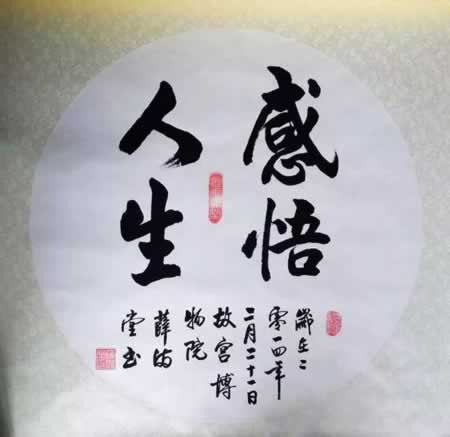 感悟
人生
歲在二
零一四年
二月二十一日
故宫博
物院
薛海
堂书